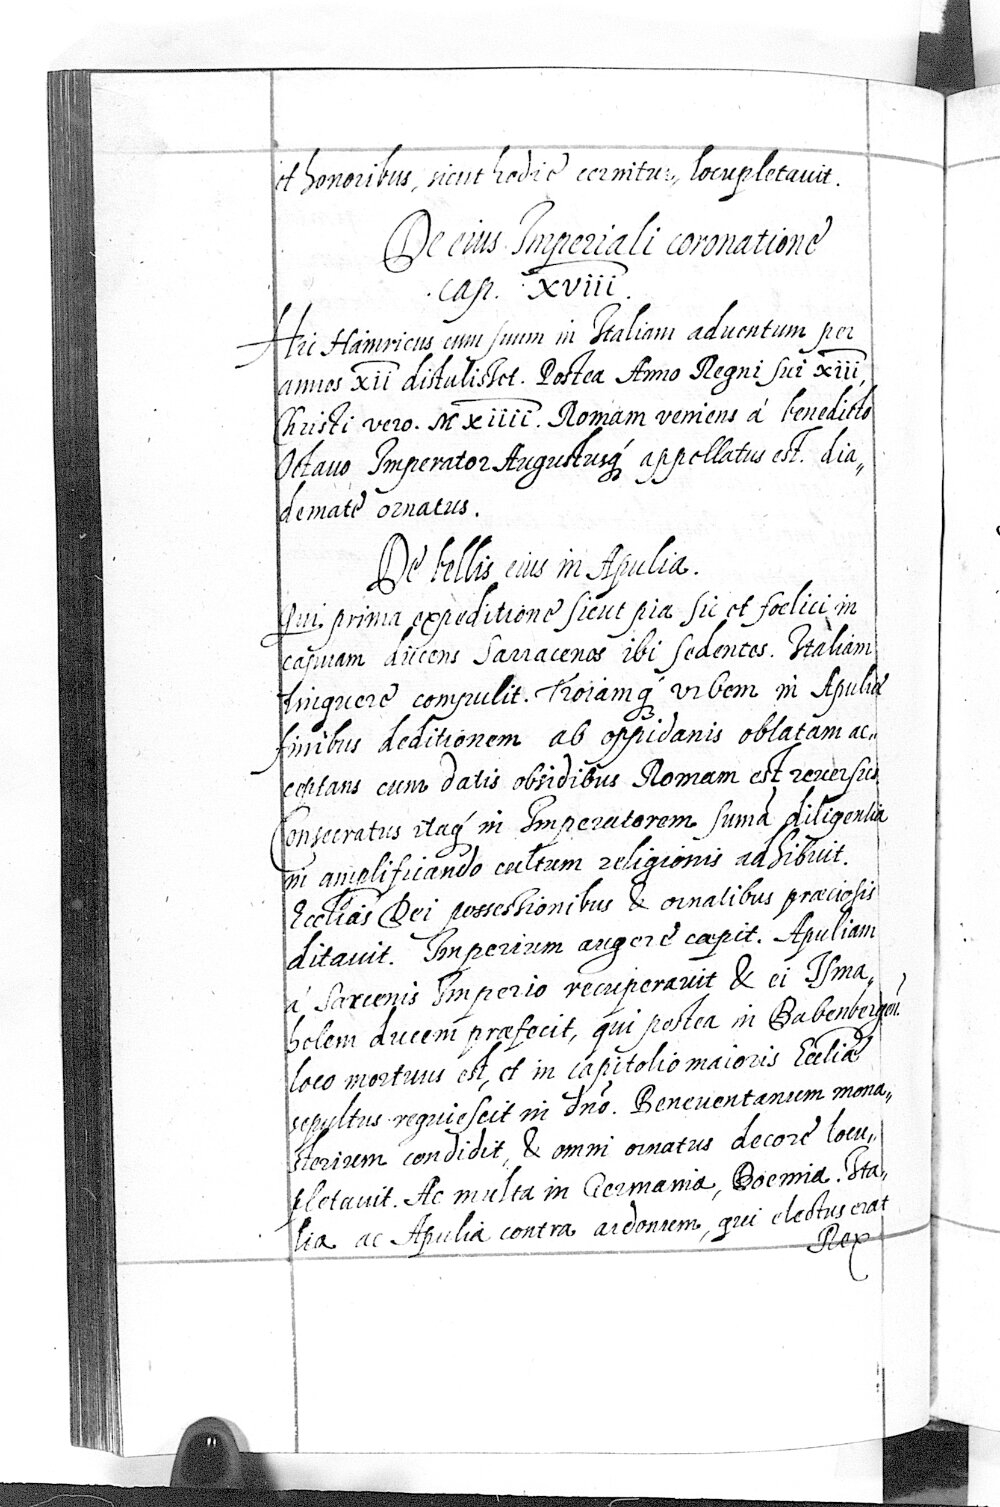 et honoribus, sicut hodie cernitur, locupletavit.
De eius Imperiali coronatione
cap. XVIII.
Hic Hainricus cum suum in Italiam aduentum per
annos XII distulisset. Postea Anno Regni sui XIII,
Christi vero. MXIIII. Romam veniens á benedicto
Octauo Imperator Augustusq́ appellatus est. dia„
demate ornatus.
De bellis eius in Apulia.
Qui prima expeditione sicut pia sic et foelici in
capuam ducens Sarracenos ibi sedentes. Italiam
linquere compulit. Troiamq́ urbem in Apuliæ
finibus deditionem ab oppidanis oblatam ac„
ceptans cum datis obsidibus Romam est reuersus
Consecratus itaq́ in Imperatorem suma diligentia
in amplificando cultum religionis adhibuit.
Eccliäs Dei possessionibus & ornatibus præciosis
ditauit. Imperium augere cæpit. Apuliam
á Sarcenis Imperio recuperauit & ei Isma„
helem ducem præfecit, qui postea in Babenbergen̄.
loco mortuus est, et in capitolio maioris Eccliæ
sepultus requiescit in dnō. Beneuentanum mona„
sterium condidit, & omni ornatus decore locu„
pletauit. Ac multa in Germania, Boemia. Ita„
lia ac Apulia contra ardonum, qui electus erat
Rex